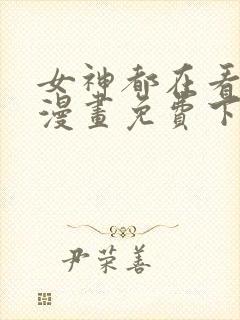 女神都在看
漫畫免費下
尹荣善